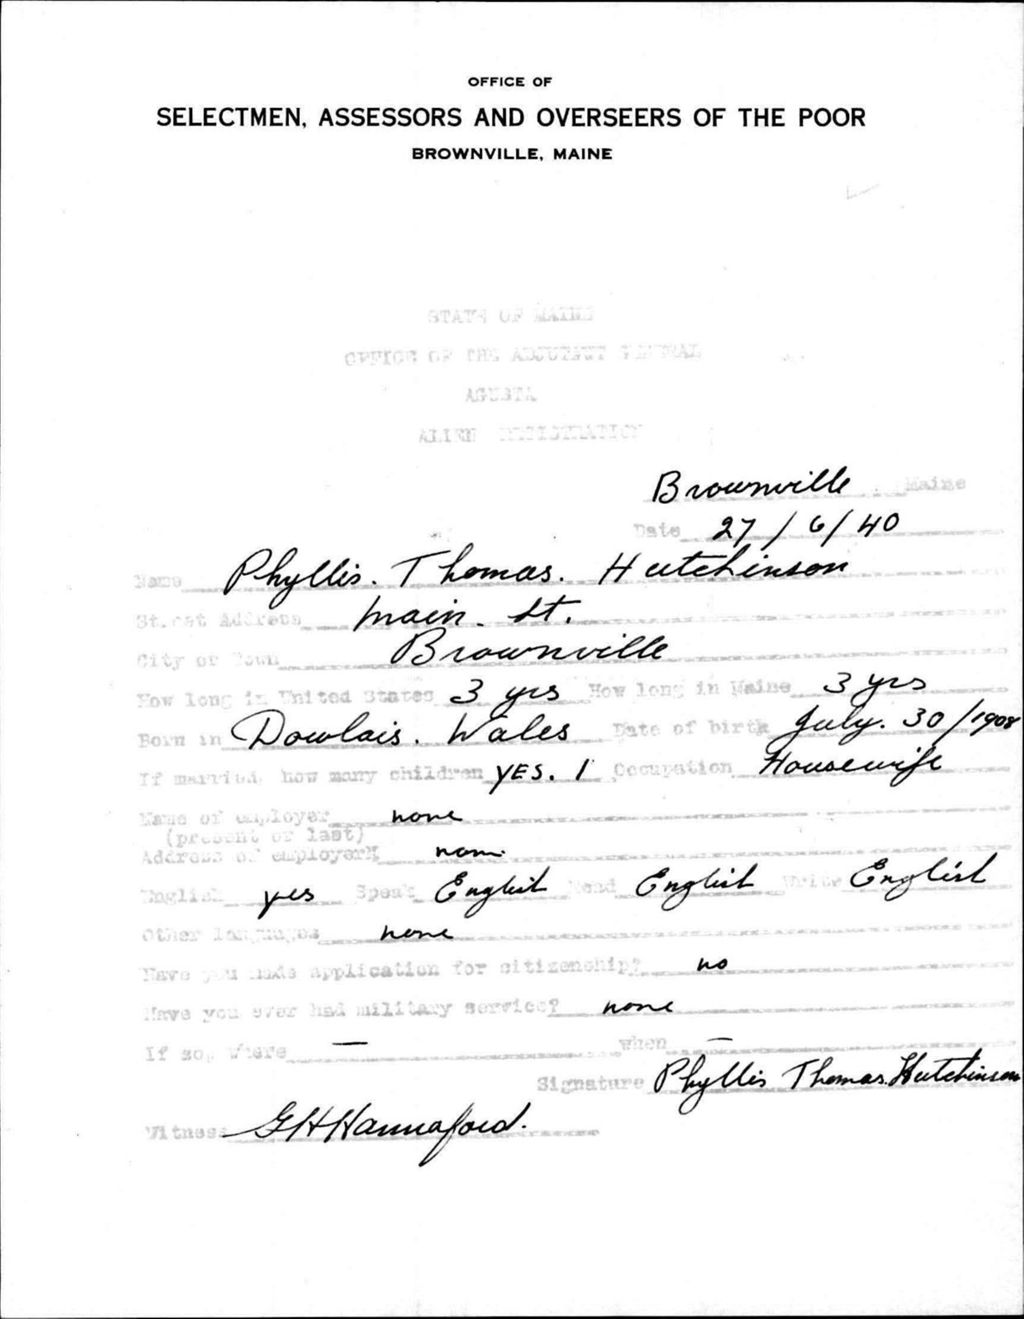 OFFICE OF
SELECTMEN, ASSESSORS AND OVERSEERS OF THE POOR
BROWNVILLE, MAINE
STATE OF MAINE
OFFICE OF THE ADJUTANT GENERAL
AGUSTA
ALIEN REGISTRATION
Brownville, Maine
Date 27/6/40
Name Phyllis. Thomas. Hutchinson
Street Address main. St.
City or Town Brownville
How long in United States 3 yrs How long in Maine 3 yrs
Born in Dowlais. Wales Date of birth July. 30/1908
If married, how many children YES. 1 Occupation Housewife
Name of employer none
(present or last)
Address of employer none
English yes Speak English Read English Write English
Other languages none
Have you made application for citizenship? no
Have you ever had military service? none
If so, where — when —
Signature Phyllis Thomas. Hutchinson
Witness G H Hannaford.